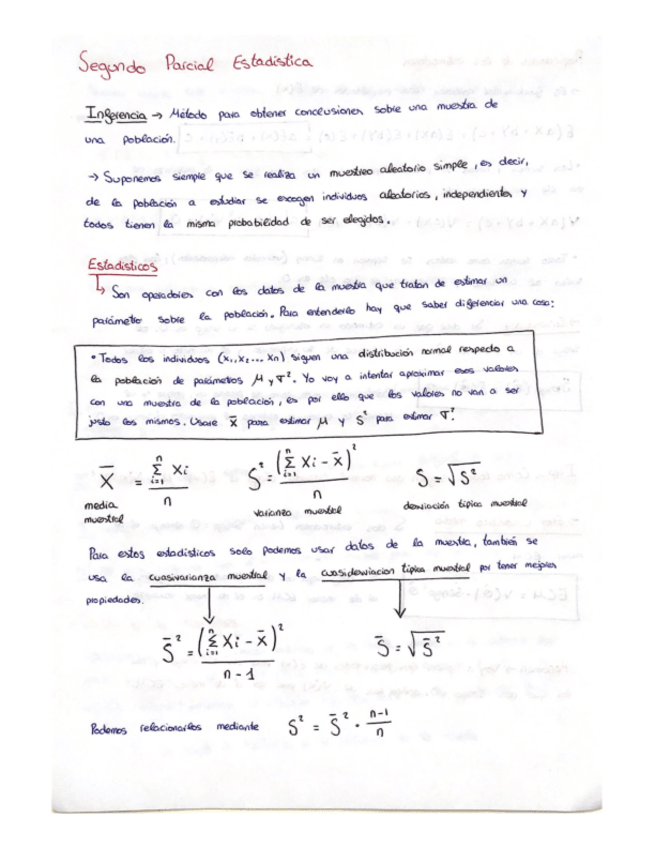 Segundo Parcial Estadística
Inferencia → Método para obtener conclusiones sobre una muestra de
una población.
→ Suponemos siempre que se realiza un muestreo aleatorio simple, es decir,
de la población a estudiar se escogen individuos aleatorios, independientes y
todos tienen la misma probabilidad de ser elegidos.
Estadísticos
↳ Son operadores con los datos de la muestra que tratan de estimar un
parámetro sobre la población. Para entenderlo hay que saber diferenciar una cosa:
• Todos los individuos (x₁, x₂... xn) siguen una distribución normal respecto a
la población de parámetros μ y σ². Yo voy a intentar aproximar esos valores
con una muestra de la población, es por ello que los valores no van a ser
justo los mismos. Usare x̄ para estimar μ y S² para estimar σ².
X̄ = Σ(i=1, n) Xi / n   S² = (Σ(i=1, n) Xi - x̄)² / n   S = √S²
media muestral   varianza muestral   desviación típica muestral
Para estos estadísticos solo podemos usar datos de la muestra, también se
usa la cuasivarianza muestral y la cuasidesviacion típica muestral por tener mejores
propiedades.
S̄² = (Σ(i=1, n) Xi - x̄)² / n - 1   S̄ = √S̄²
Podemos relacionarlos mediante S² = S̄² · n-1 / n